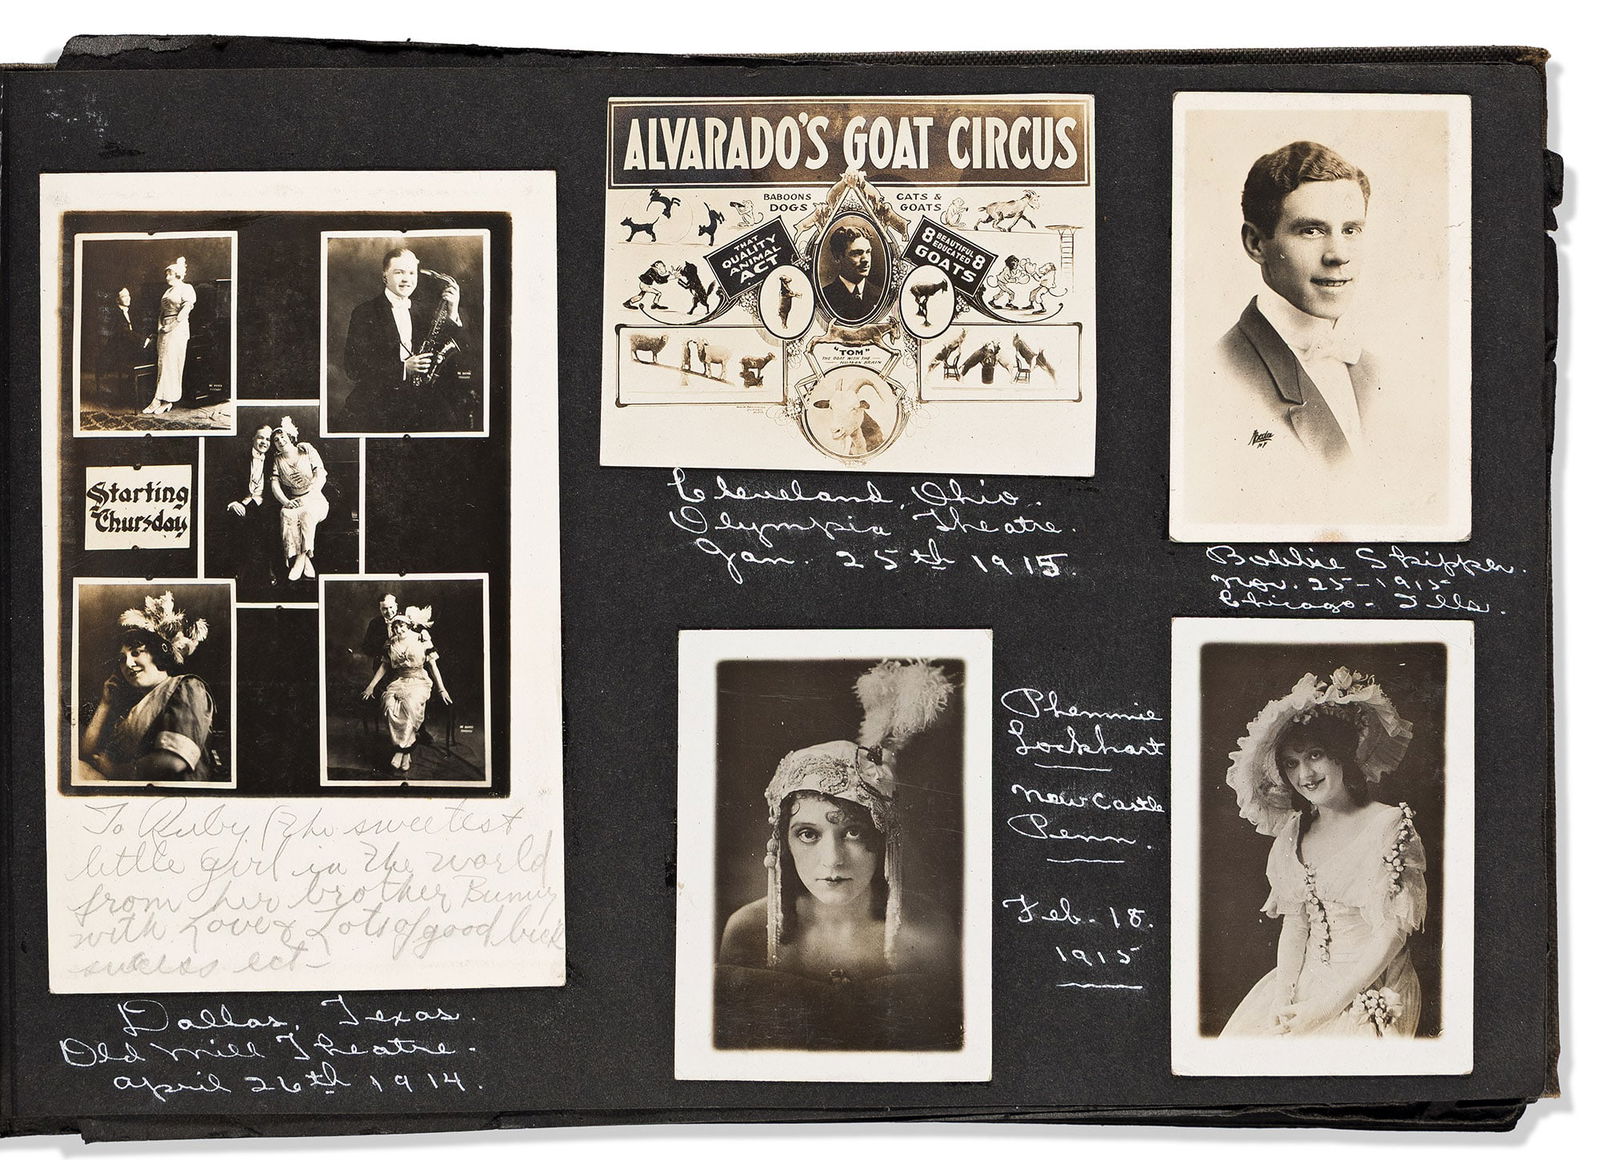 Starting
Thursday
To Ruby the sweetest
little girl in the world
from her brother Bunny
with Love & Lots of good luck
success ect-
Dallas, Texas.
Old Mill Theatre.
April 26th 1914.
ALVARADO'S GOAT CIRCUS
BABOONS
DOGS
CATS &
GOATS
THAT
QUALITY
ANIMAL
ACT
8 BEAUTIFUL EDUCATED 8
GOATS
"TOM"
THE GOAT WITH THE
HUMAN BRAIN
Cleveland, Ohio.
Olympia Theatre.
Jan. 25th 1915.
Bobbie Skipper.
Nov. 25-1915
Chicago - Ills.
Phemmie
Lockhart
New Castle
Penn.
Feb-18.
1915